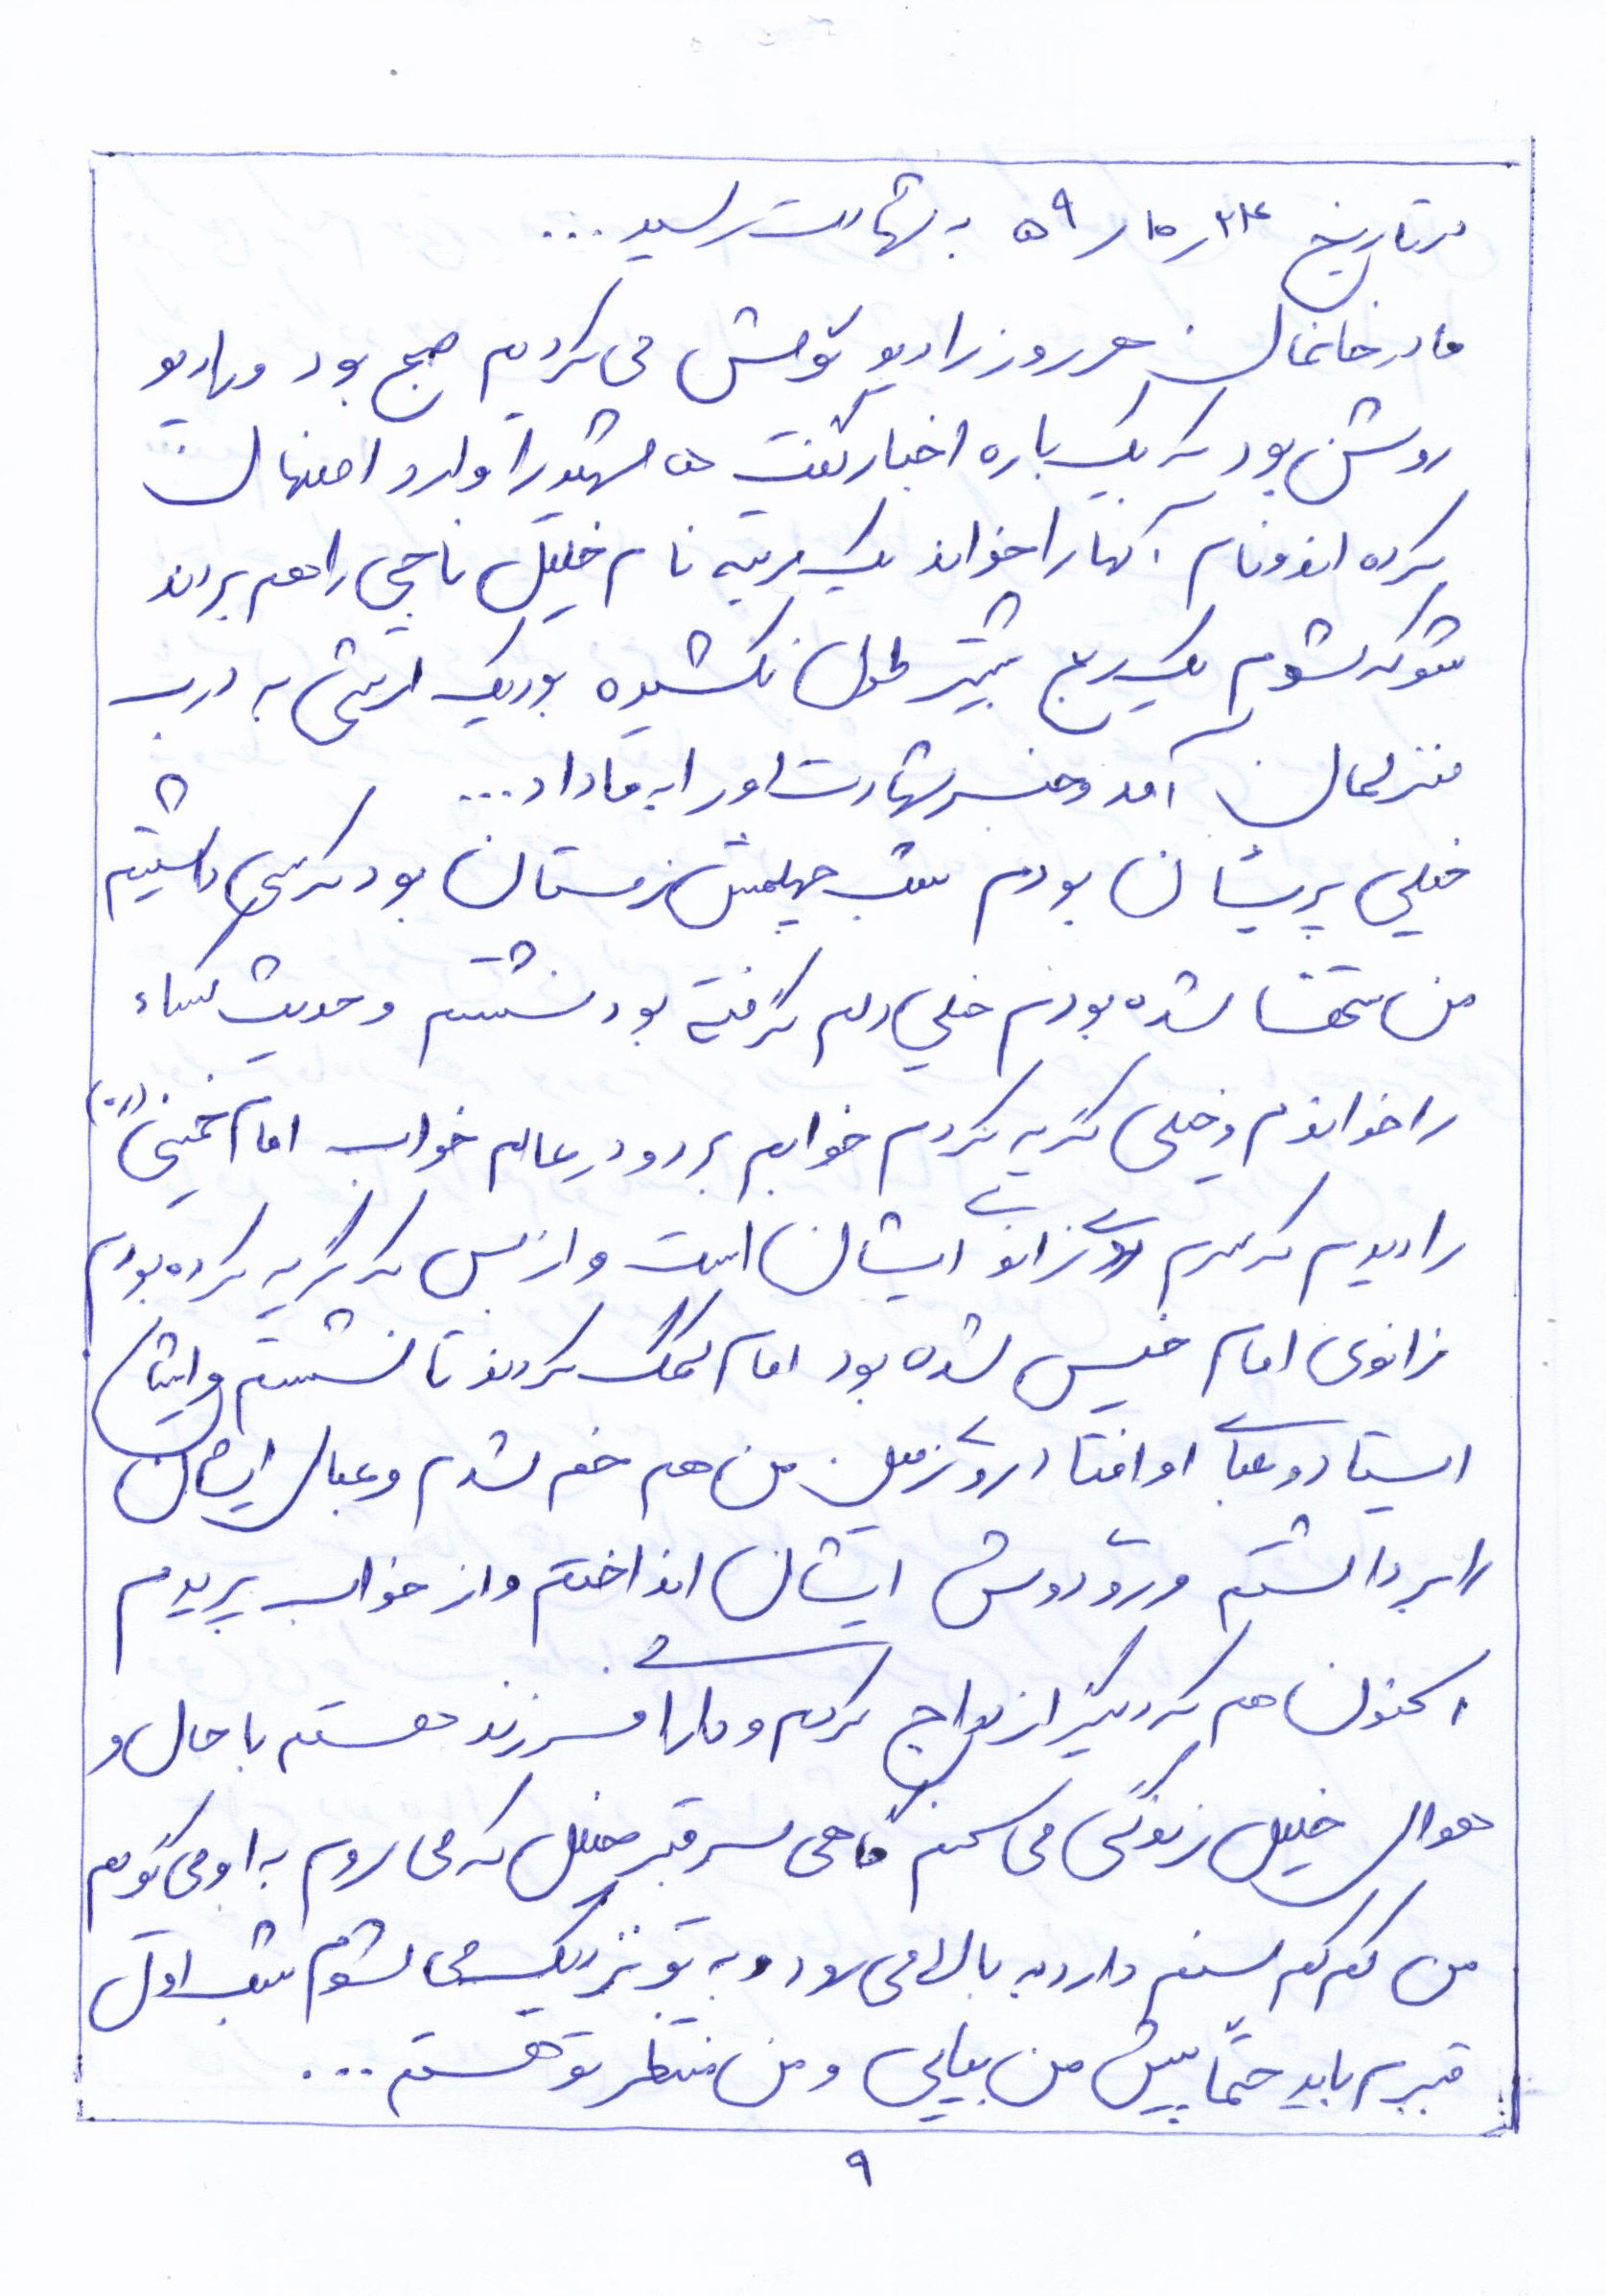 در تاریخ ۵۹/۱۰/۲۴ به شهادت رسید ...
ما در خانمان هر روز رادیو گوش می کردیم صبح بود و رادیو
روشن بود که یک باره اخبار گفت ۵ شهید را وارد اصفهان
کرده اند و نام آنها را خواند یک مرتبه نام خلیل ناجی را هم بردند
شوکه شدم یک ربع بیشتر طول نکشیده بود یک ارتشی به درب
منزلمان آمد و خبر شهادت او را به ما داد ...
خیلی پریشان بودم شب چهلمش زمستان بود کرسی داشتیم
من تنها شده بودم خیلی دلم گرفته بود نشستم و حدیث کساء
را خواندم و خیلی گریه کردم خوابم برد و در عالم خواب امام خمینی (ره)
را دیدم که سرم روی زانوی ایشان است و از بس که گریه کرده بودم
زانوی امام خیس شده بود امام کمک کردند تا نشستم و ایشان
ایستاد و عبای او افتاد روی زمین من هم خم شدم و عبای ایشان
را برداشتم و روی دوش ایشان انداختم و از خواب پریدم
اکنون هم که دیگر ازدواج کردم و دارای فرزند هستم با حال و
هوای خلیل زندگی می کنم گاهی سر قبر خلیل که می روم به او می گویم
من کم کم سنم دارد به بالا می رود و به تو نزدیک می شوم شب اول
قبرم باید حتماً پیش من بیایی و من منتظر تو هستم ...
۹